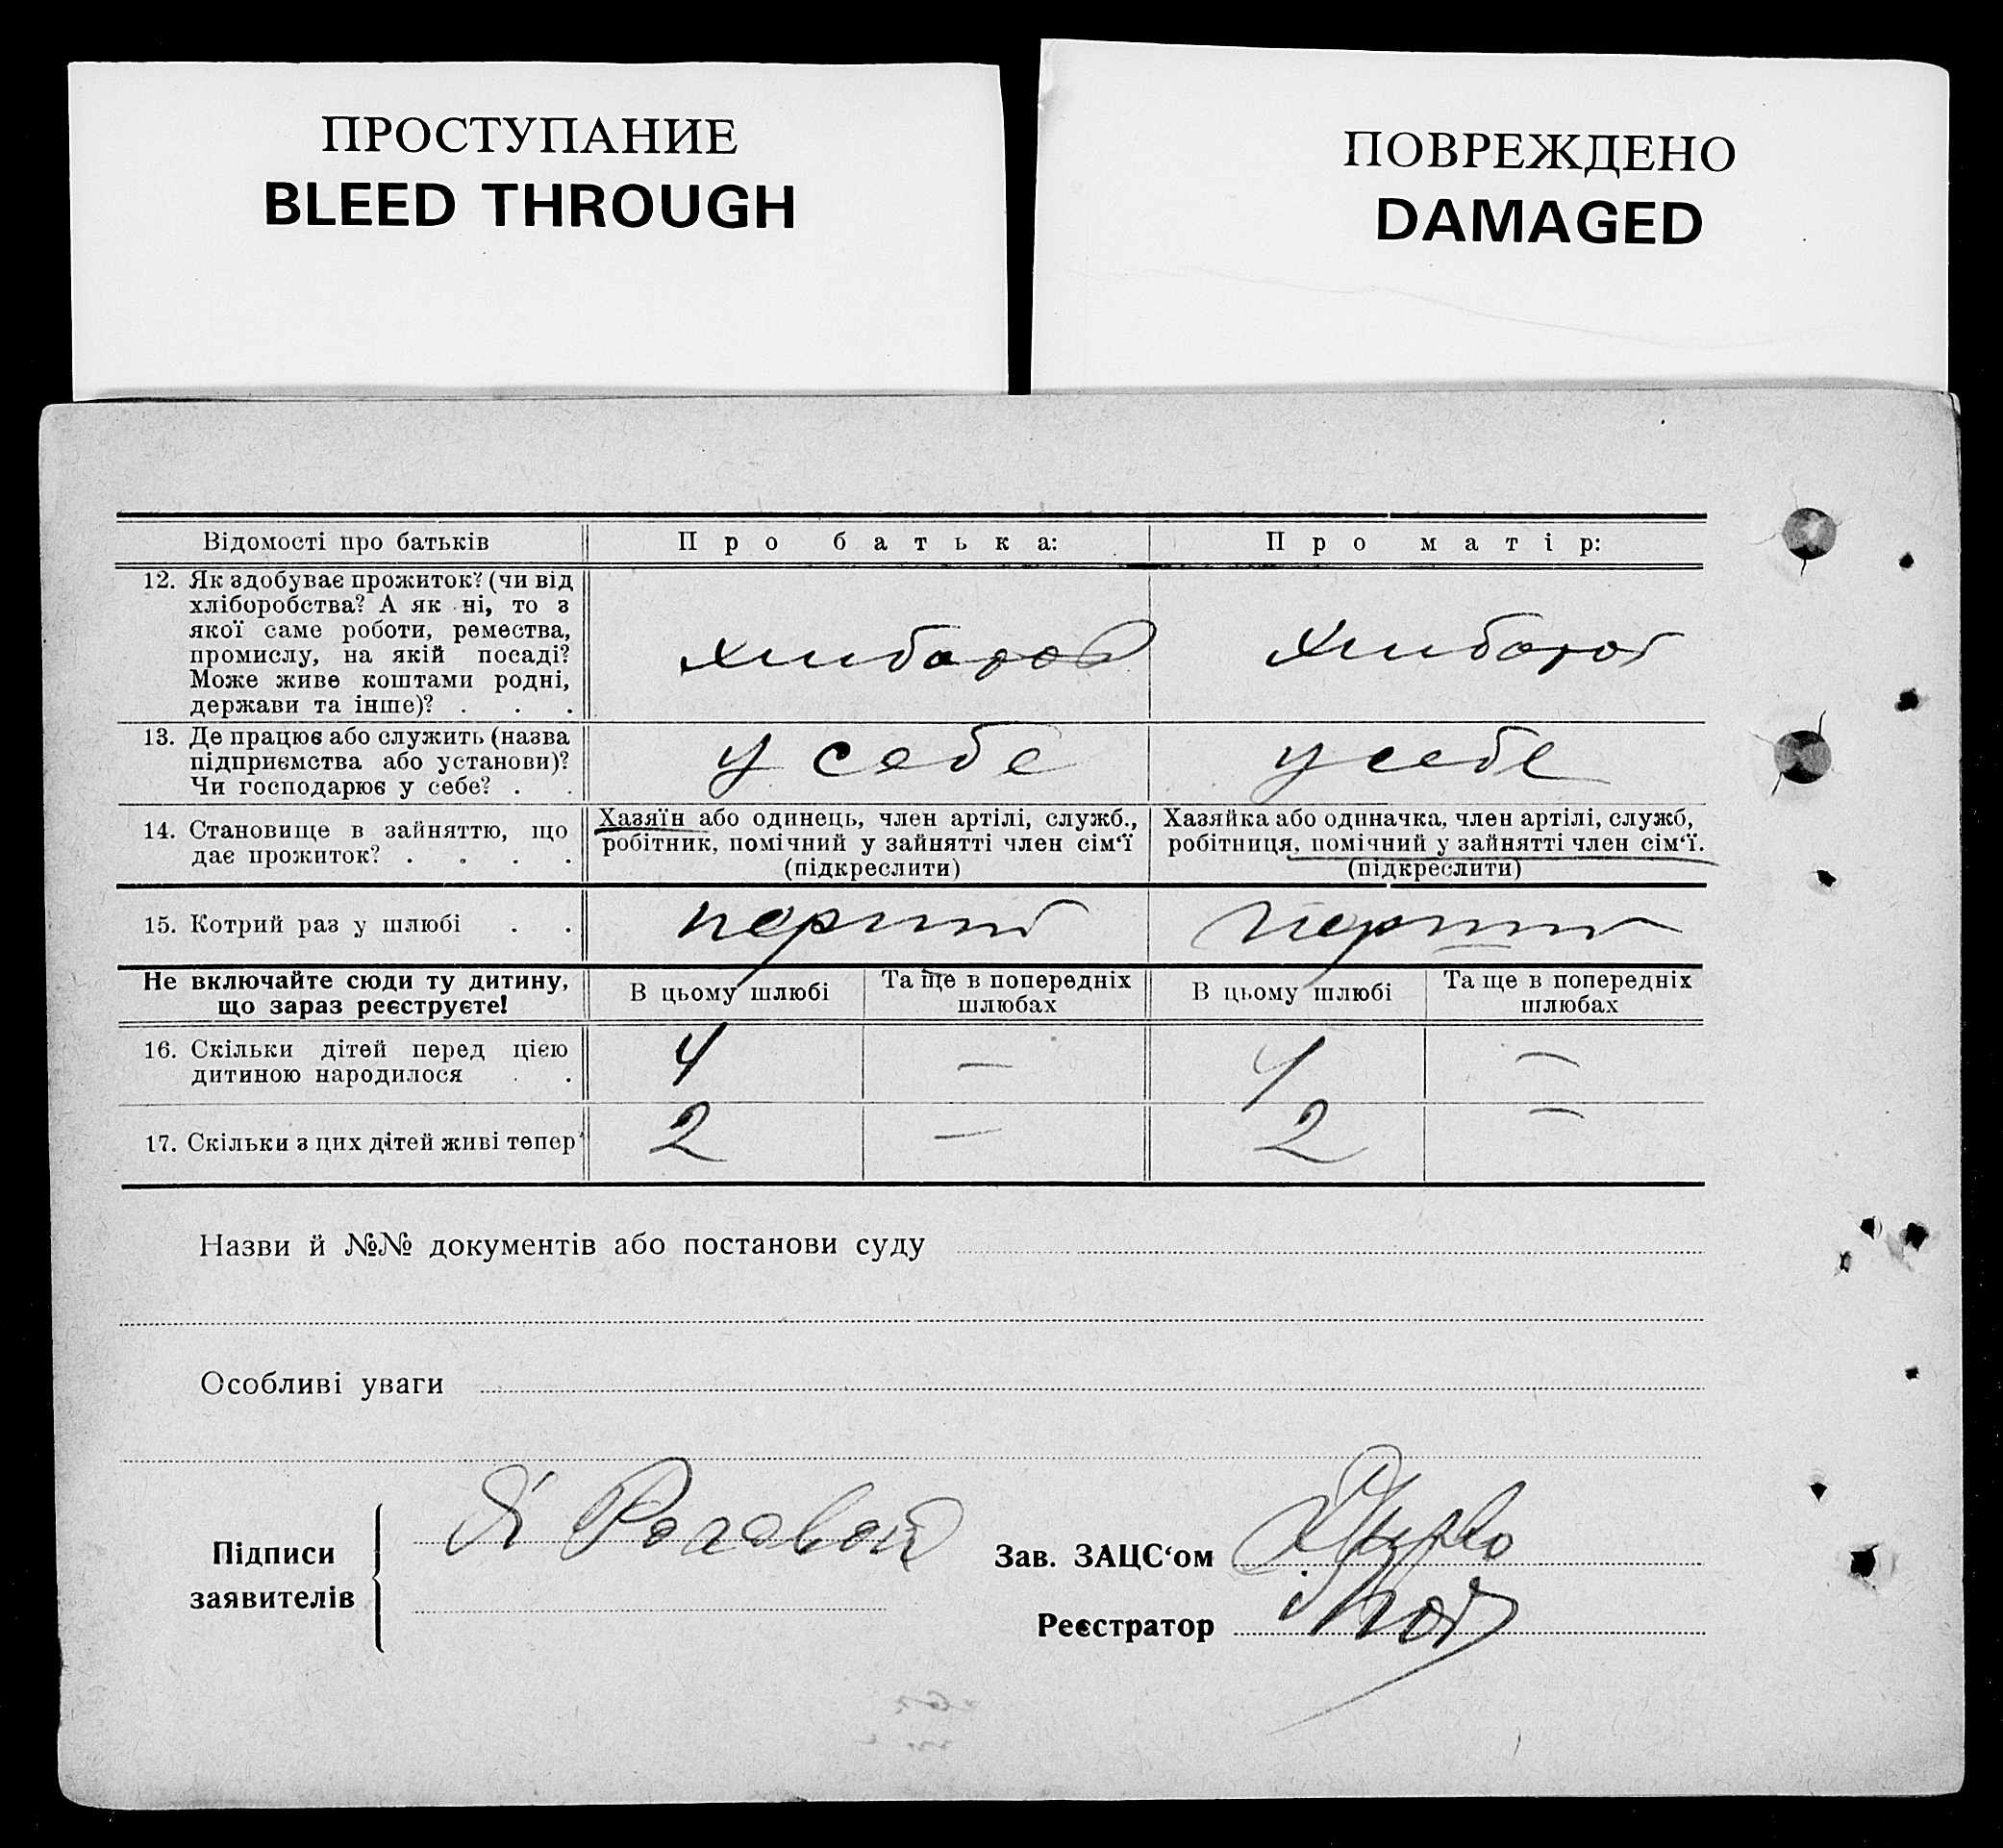 ПРОСТУПАНИЕ
BLEED THROUGH
ПОВРЕЖДЕНО
DAMAGED
Відомості про батьків Про батька: Про матір:
12. Як здобуває прожиток? (чи від
хліборобства? А як ні, то з
якої саме роботи, ремества,
промислу, на якій посаді?
Може живе коштами родні,
держави та інше)? . . .
хлибороб хлибороб
13. Де працює або служить (назва
підприємства або установи)?
Чи господарює у себе? . .
у себе у себе
14. Становище в зайняттю, що
дає прожиток? . . . .
Хазяїн або одинець, член артілі, служб.,
робітник, помічний у зайнятті член сім‘ї
(підкреслити)
Хазяйка або одиначка, член артілі, служб,
робітниця, помічний у зайнятті член сім‘ї.
(підкреслити)
15. Котрий раз у шлюбі . . перший перший
Не включайте сюди ту дитину,
що зараз реєструєте!
В цьому шлюбі
Та ще в попередніх
шлюбах
В цьому шлюбі
Та ще в попередніх
шлюбах
16. Скільки дітей перед цією
дитиною народилося . .
4 — 4 —
17. Скільки з цих дітей живі тепер 2 — 2 —
Назви й №№ документів або постанови суду
Особливі уваги
Підписи
заявителів
Роговой
Зав. ЗАЦС‘ом
Реєстратор